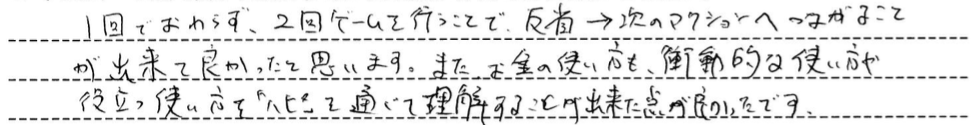 1回でおわらず、2回ゲームを行うことで、反省→次のアクションへつながること
が出来て良かったと思います。また、お金の使い方も、衝動的な使い方や
役立つ使い方を を通じて理解することが出来た点が良かったです。